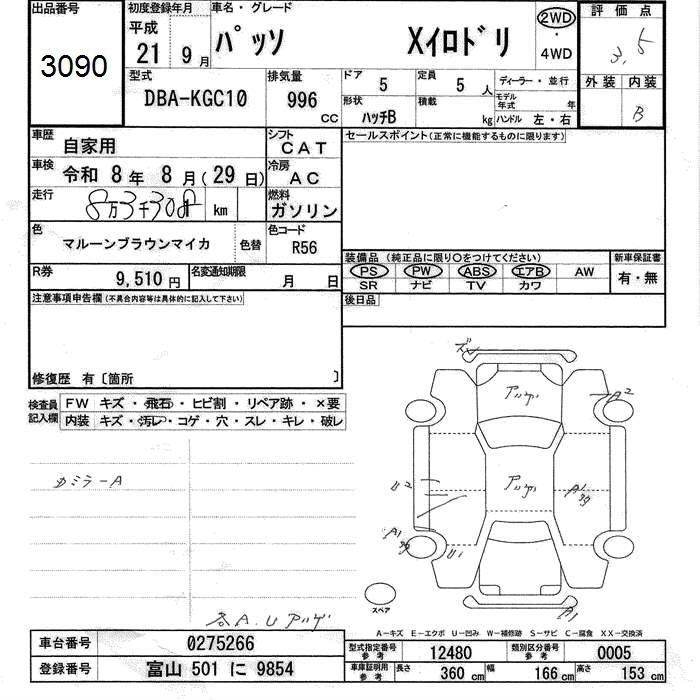 出品番号
3090
初度登録年月
平成
21 9月
車名・グレード
パッソ Xイロドリ
2WD
・
4WD
評価点
3.5
外装 内装
B
型式
DBA-KGC10
排気量
996
CC
ドア
5
定員
5 人
形状
ハッチB
積載
kg
ディーラー・並行
モデル年式 年
ハンドル 左・右
車歴
自家用
シフト
CAT
車検
令和 8年 8月(29日)
冷房
AC
走行
8万3千30 km
燃料
ガソリン
色
マルーンブラウンマイカ
色替
色コード
R56
R券
9,510円
名変通知期限
月 日
セールスポイント(正常に機能するものに限ります)
装備品 (純正品に限り○をつけてください)
PS PW ABS エアB AW
SR ナビ TV カワ
新車保証書
有・無
後日品
注意事項申告欄(不具合内容等は具体的に記入して下さい)
修復歴 有〔箇所 〕
検査員
記入欄
FW キズ・飛石・ヒビ割・リペア跡・×要
内装 キズ・汚レ・コゲ・穴・スレ・キレ・破レ
カミラーA
各A.Uアゲ
アゲ
A2
アゲ
U2
A1
A1
U1
A1
スペア
A-キズ E-エクボ U-凹み W-補修跡 S-サビ C-腐食 XX-交換済
車台番号
0275266
登録番号
富山 501 に 9854
型式指定番号
参考
12480
類別区分番号
参考
0005
車庫証明用
参考
長さ 360 cm 幅 166 cm 高さ 153 cm